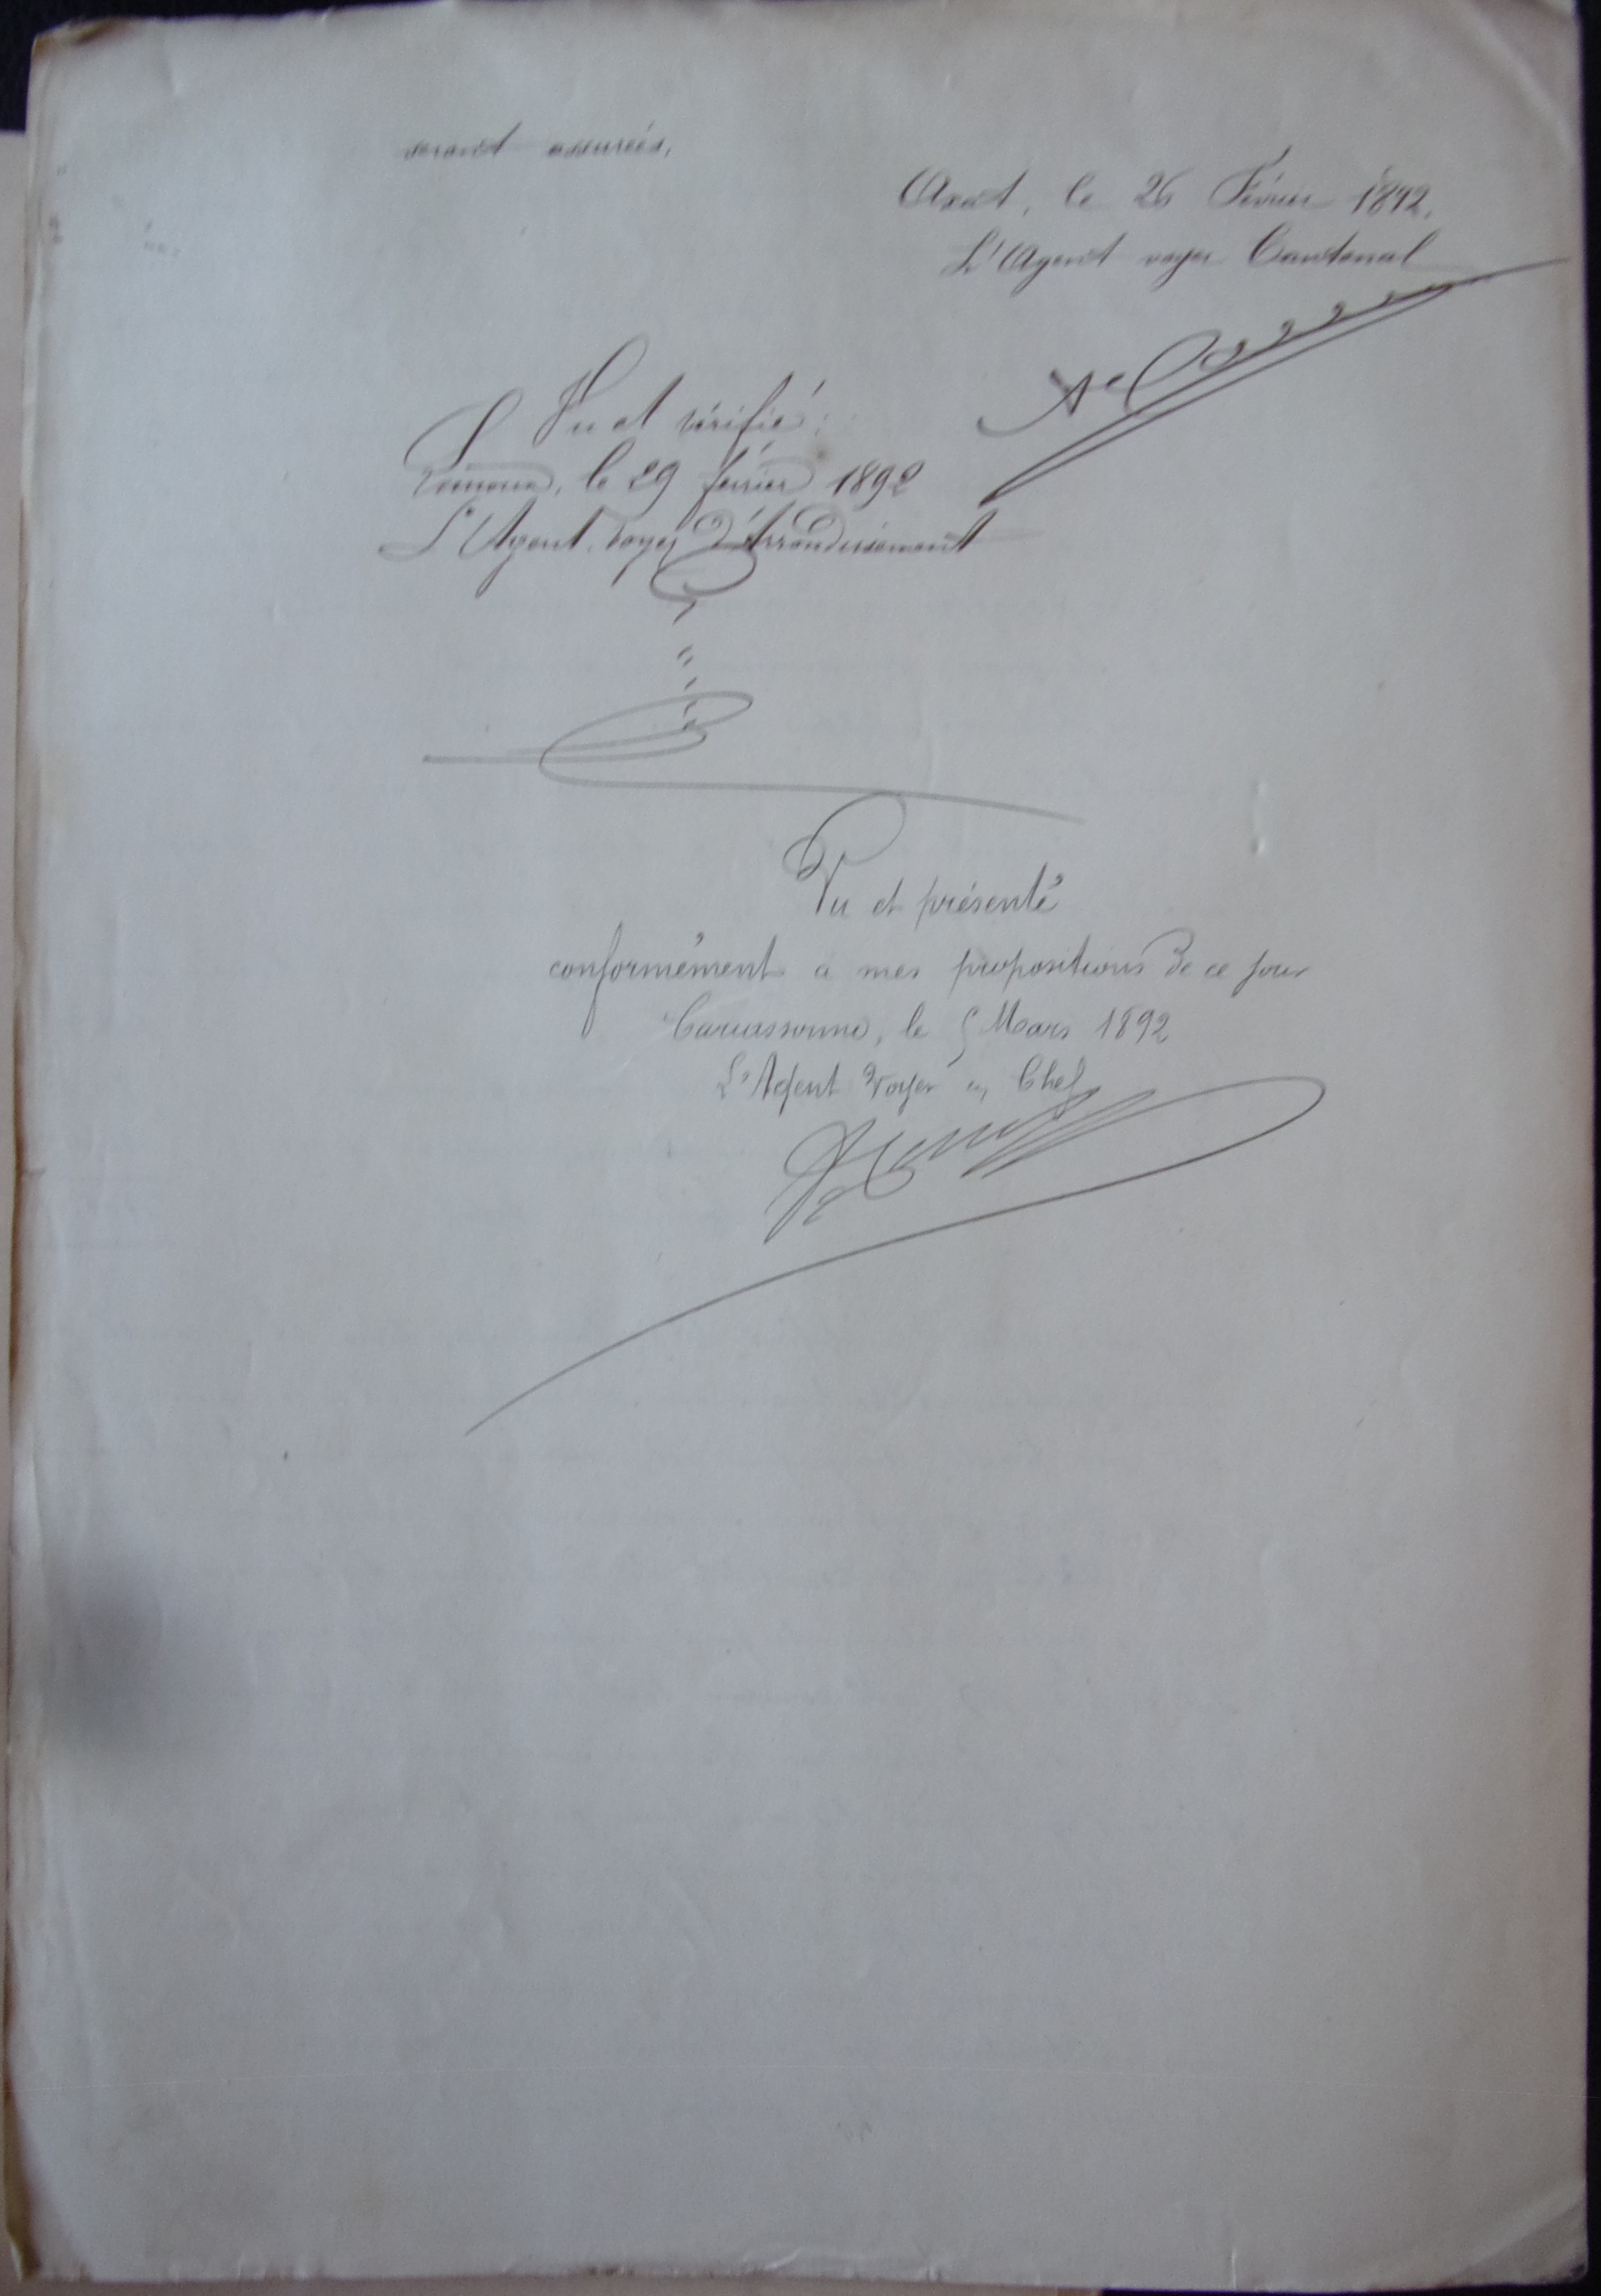 seront assurées,
Axat, le 26 Février 1892,
L'Agent voyer Cantonal
Vu et vérifié :
Limoux, le 29 février 1892
L'Agent-voyer d'Arrondissement
Vu et présenté
conformément a mes propositions de ce jour
Carcassonne, le 5 Mars 1892
L'Agent Voyer en Chef